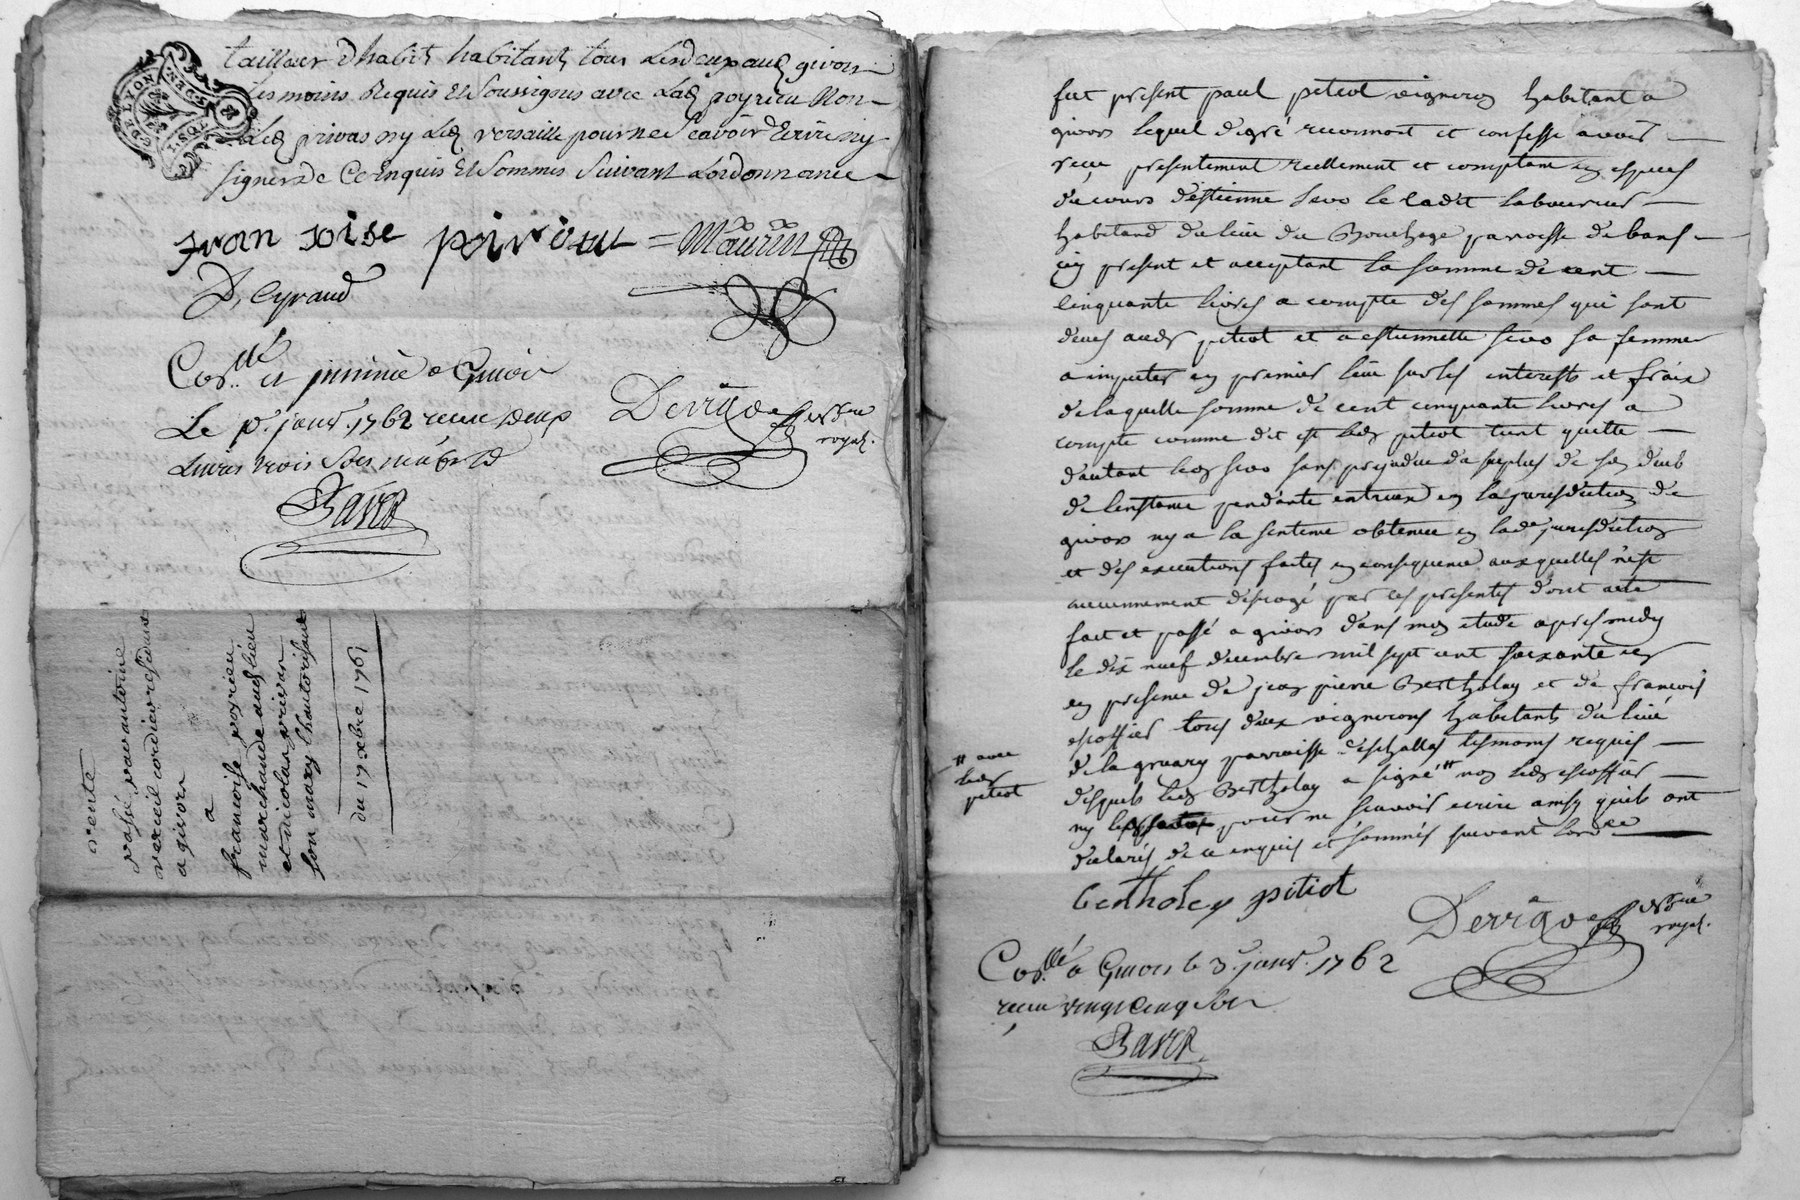 tailleur d'habit habitants tous lesdeux aud givors
tesmoins Requis Et Soussignes avec Lad. poyrieu Non
Led. privas ny Led. versaille pour ne Scavoir Ecrire ny
signer de Ce Enquis Et Sommes Suivant Lordonnance
fran soise poirieux = Maurin
D. Eyraud
Con.llé et insinué a Givors
Le p.r janv.r 1762 receu deux
Livres trois Sols
Bavet
Derrigoe
royal.
GN DE LYON
vente
antoine
verseil cordier residant
a givors
a
francoise poyrieu
marchande aud. lieu
et nicolas privas
son mary l'hautorisant
du 17 xbre 1761
fut present paul pitiot vigneron habitant a
givors lequel de gré reconnoit et confesse avoir
receu presentement reellement et comptant en especes
du cours d'estienne sevo le cadet laboureur
habitand du lieu du Bouchage parroisse de bans
icy present et acceptant la somme de cent
cinquante livres a compte des sommes qui sont
deues aud. pitiot et a estiennette sevo sa femme
a imputer en premier lieu sur les interests et frais
de laquelle somme de cent cinquante livres a
compte comme dit est led. pitiot tient quitte
d'autant led. sevo sans prejudice du surplus de son deub
de l'instance pendante entr'eux en la jurisdiction de
givors ny a la sentence obtenue en lad.e jurisdiction
et des executions faites en consequence auxquelles n'est
aucunnement derogé par ces presentes dont acte
fait et passé a givors dans mon etude apres midy
le dix neuf decembre mil sept cent soixante un
en presence de jean pierre Berthelay et de francois
escoffier tous deux vignerons habitants du lieu
de la gruary parroisse d'eschallas tesmoins requis
desquels led. Berthelay a signé # non led. escoffier
# avec
led.
pitiot
ny pour ne scavoir ecrire ainsy quils ont
declarés de ce enquis et sommés suivant lord.ce
bertholey pitiot
Derrigoe
royal.
Con.llé a Givors le 3. janv.r 1762
receu vingt cinq sols
Bavet